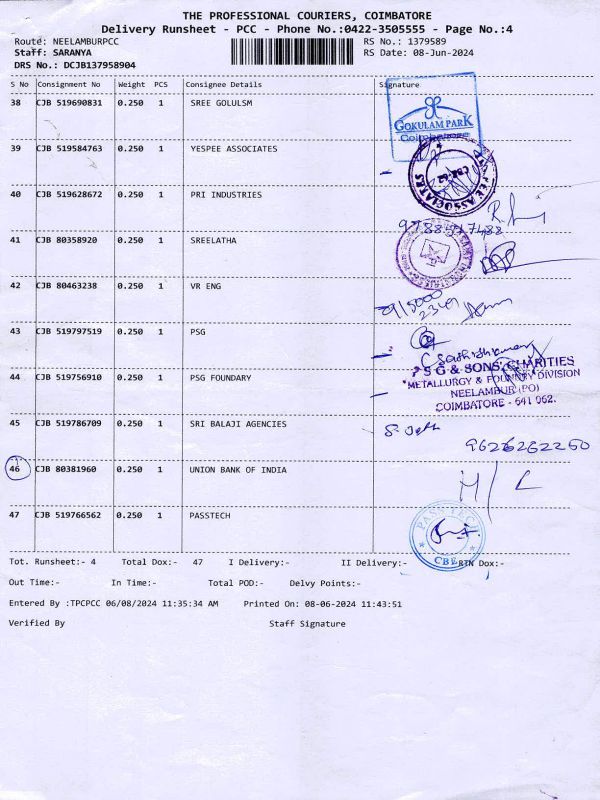 THE PROFESSIONAL COURIERS, COIMBATORE
Delivery Runsheet - PCC - Phone No.:0422-3505555 - Page No.:4
Route: NEELAMBURPCC RS No.: 1379589
Staff: SARANYA RS Date: 08-Jun-2024
DRS No.: DCJB137958904
S No Consignment No Weight PCS Consignee Details Signature
38 CJB 519690831 0.250 1 SREE GOLULSM
GOKULAM PARK
Coimbatore
39 CJB 519584763 0.250 1 YESPEE ASSOCIATES
40 CJB 519628672 0.250 1 PRI INDUSTRIES
41 CJB 80358920 0.250 1 SREELATHA
42 CJB 80463238 0.250 1 VR ENG
43 CJB 519797519 0.250 1 PSG
P S G & SONS' CHARITIES
METALLURGY & FOUNDRY DIVISION
NEELAMBUR (PO)
COIMBATORE - 641 062.
44 CJB 519756910 0.250 1 PSG FOUNDARY
45 CJB 519786709 0.250 1 SRI BALAJI AGENCIES
9626262250
46 CJB 80381960 0.250 1 UNION BANK OF INDIA
47 CJB 519766562 0.250 1 PASSTECH
PASSTECH
CBE
Tot. Runsheet:- 4 Total Dox:- 47 I Delivery:- II Delivery:- RTN Dox:-
Out Time:- In Time:- Total POD:- Delvy Points:-
Entered By :TPCPCC 06/08/2024 11:35:34 AM Printed On: 08-06-2024 11:43:51
Verified By Staff Signature